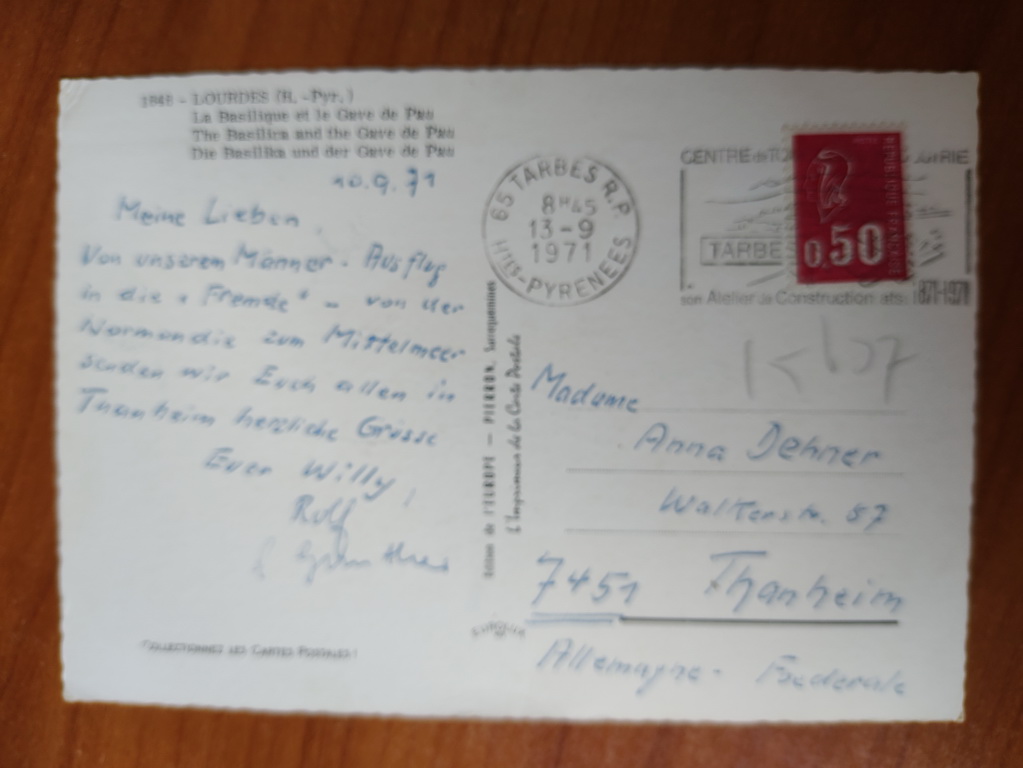 LOURDES (H.-Pyr.)
La Basilique et le Gave de Pau
The Basilica and the Gave de Pau
Die Basilika und der Gave de Pau
10.9.71
Meine Lieben
Von unserem Männer-Ausflug
in die "Fremde" - von der
Normandie zum Mittelmeer
senden wir Euch allen in
Thanheim herzliche Grüsse
Euer Willy,
Rolf
COLLECTIONNEZ LES CARTES POSTALES !
Edition de l'EUROPE - PIERRON, Sarreguemines
L'Imprimeur de la Carte Postale
65 TARBES R.P.
8H45
13-9
1971
HTES-PYRENEES
CENTRE de
TARBES
son Atelier de Construction
1871-1971
REPUBLIQUE FRANCAISE
0,50
Madame
Anna Dehner
Walkenstr. 57
7451 Thanheim
Allemagne - Federale